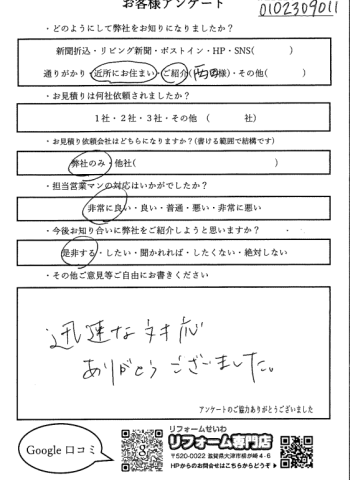 お客様アンケート
0102309011
・どのようにして弊社をお知りになりましたか？
新聞折込・リビング新聞・ポストイン・HP・SNS(　　　)
通りがかり・近所にお住まい・ご紹介(西田様)・その他(　　　)
・お見積りは何社依頼されましたか？
1社・2社・3社・その他　(　　　社)
・お見積り依頼会社はどちらになりますか？(書ける範囲で結構です)
弊社のみ・他社(　　　)
・担当営業マンの対応はいかがでしたか？
非常に良い・良い・普通・悪い・非常に悪い
・今後お知り合いに弊社をご紹介しようと思いますか？
是非する・したい・聞かれれば・したくない・絶対しない
・その他ご意見等ご自由にお書きください
迅速な対応
ありがとうございました。
アンケートのご協力ありがとうございました
Google 口コミ
リフォームせいわ
リフォーム専門店
〒520-0022 滋賀県大津市柳が崎4-6
HPからのお問合せはこちらからどうぞ▶